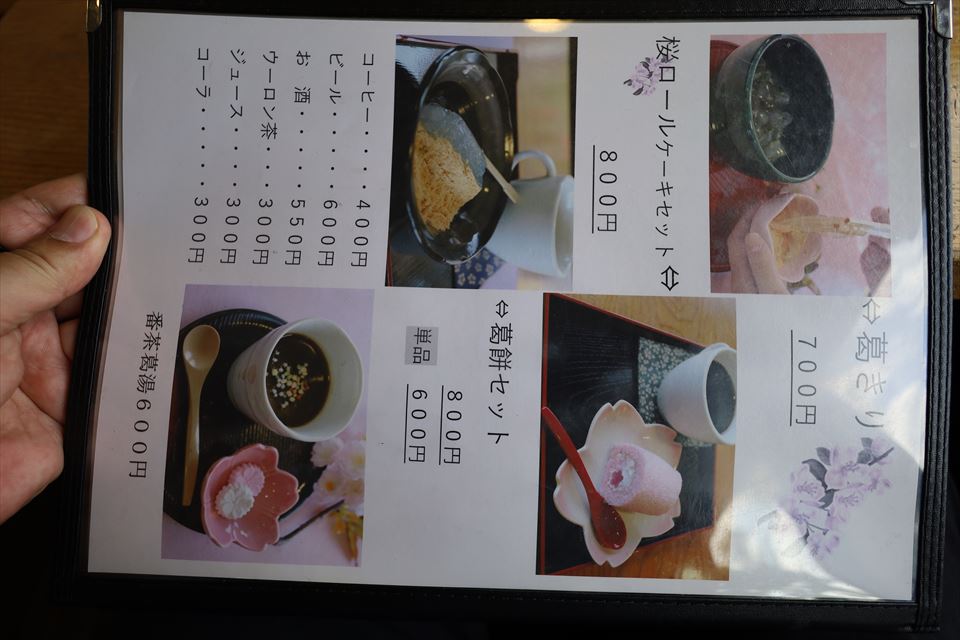 ⇔葛きり
７００円
桜ロールケーキセット⇔
８００円
⇔葛餅セット
８００円
単品 ６００円
コーヒー・・・・４００円
ビール・・・・・６００円
お酒・・・・・・５５０円
ウーロン茶・・・３００円
ジュース・・・・３００円
コーラ・・・・・３００円
番茶葛湯６００円